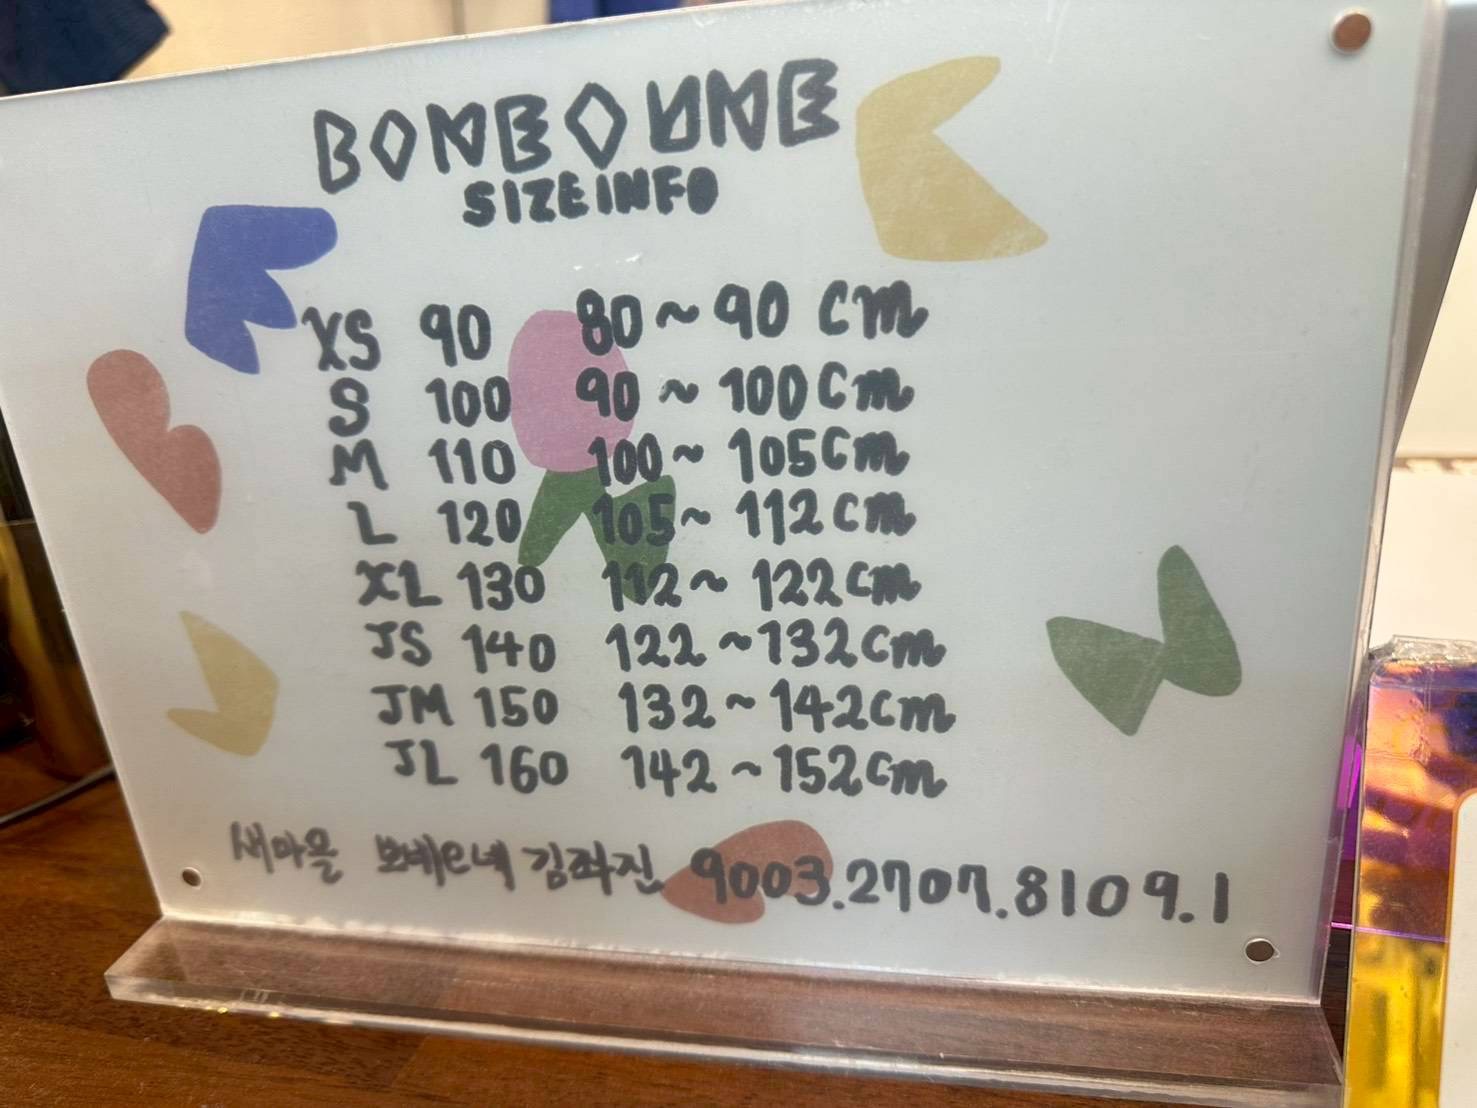 BONBOUNB
SIZE INFO
XS 90 80~90 cm
S 100 90~100cm
M 110 100~105cm
L 120 105~112cm
XL 130 112~122cm
JS 140 122~132cm
JM 150 132~142cm
JL 160 142~152cm
새마을 김좌진 9003.2707.8109.1